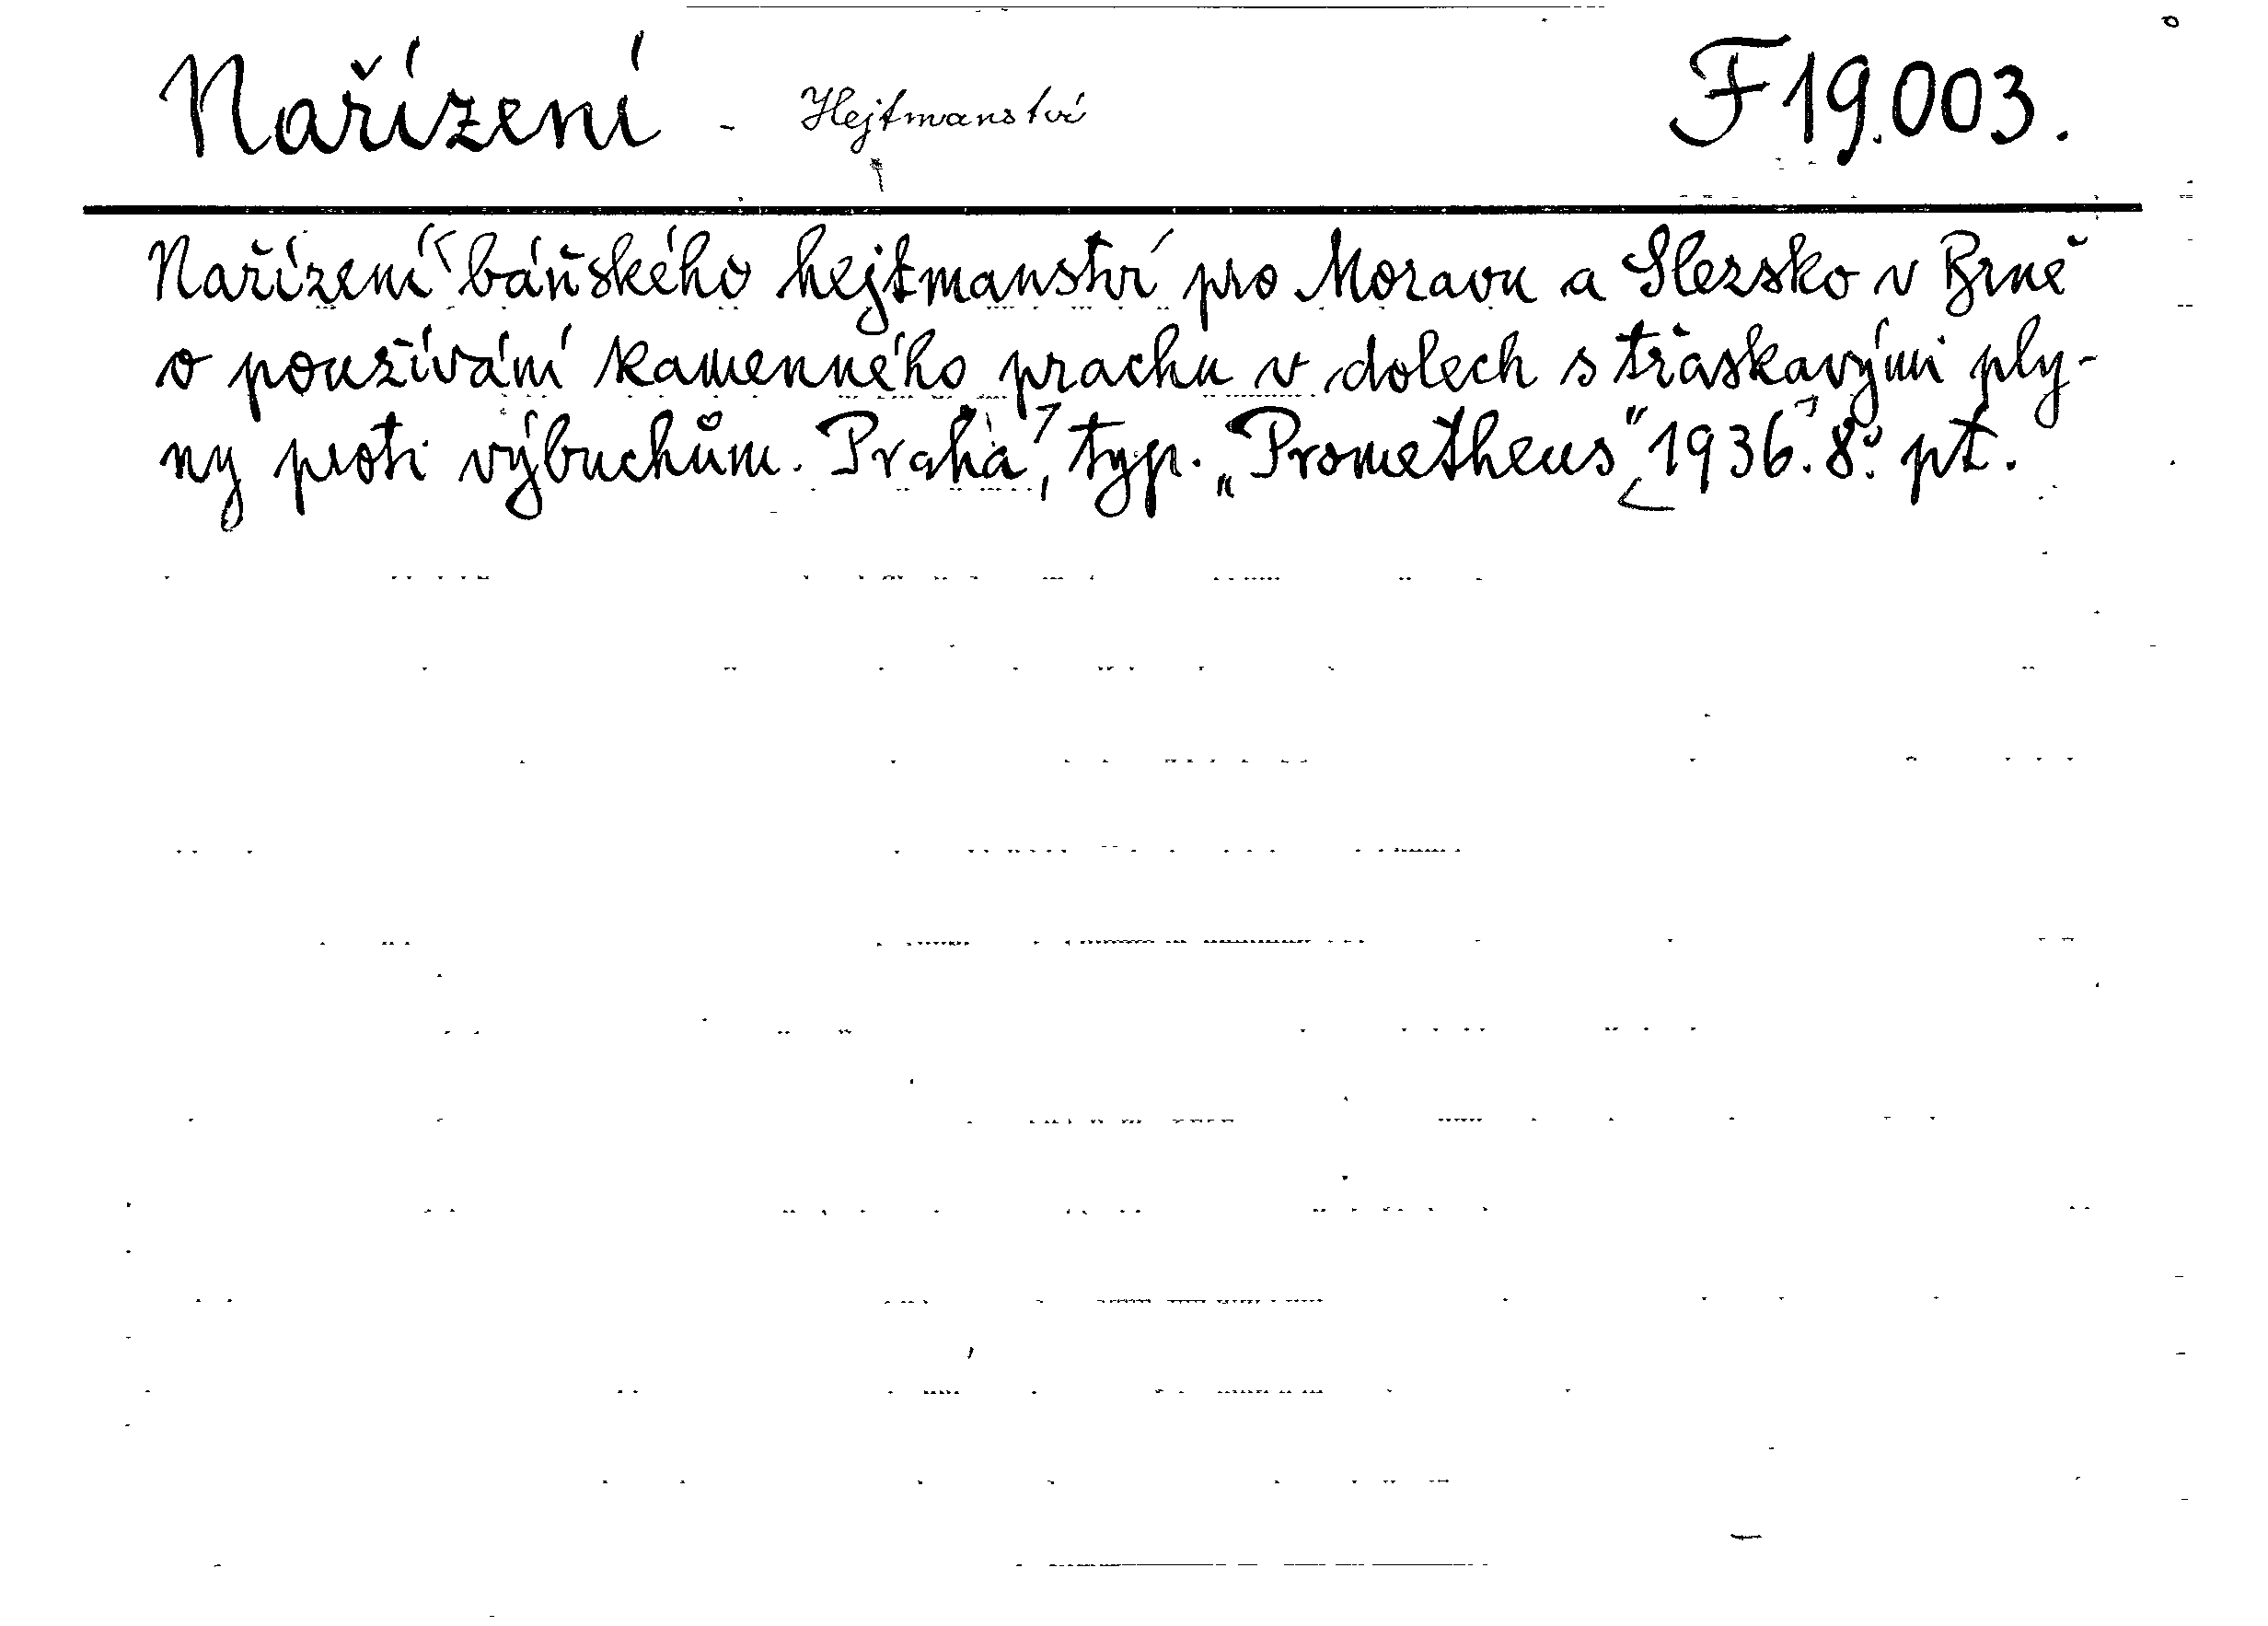 Nařízení - Hejtmanství F 19.003.
Nařízení báňského hejtmanství pro Moravu a Slezsko v Brně
o používání kamenného prachu v dolech s třaskavými ply-
ny proti výbuchům. Praha, typ. „Prometheus“ 1936. 8°. pt.